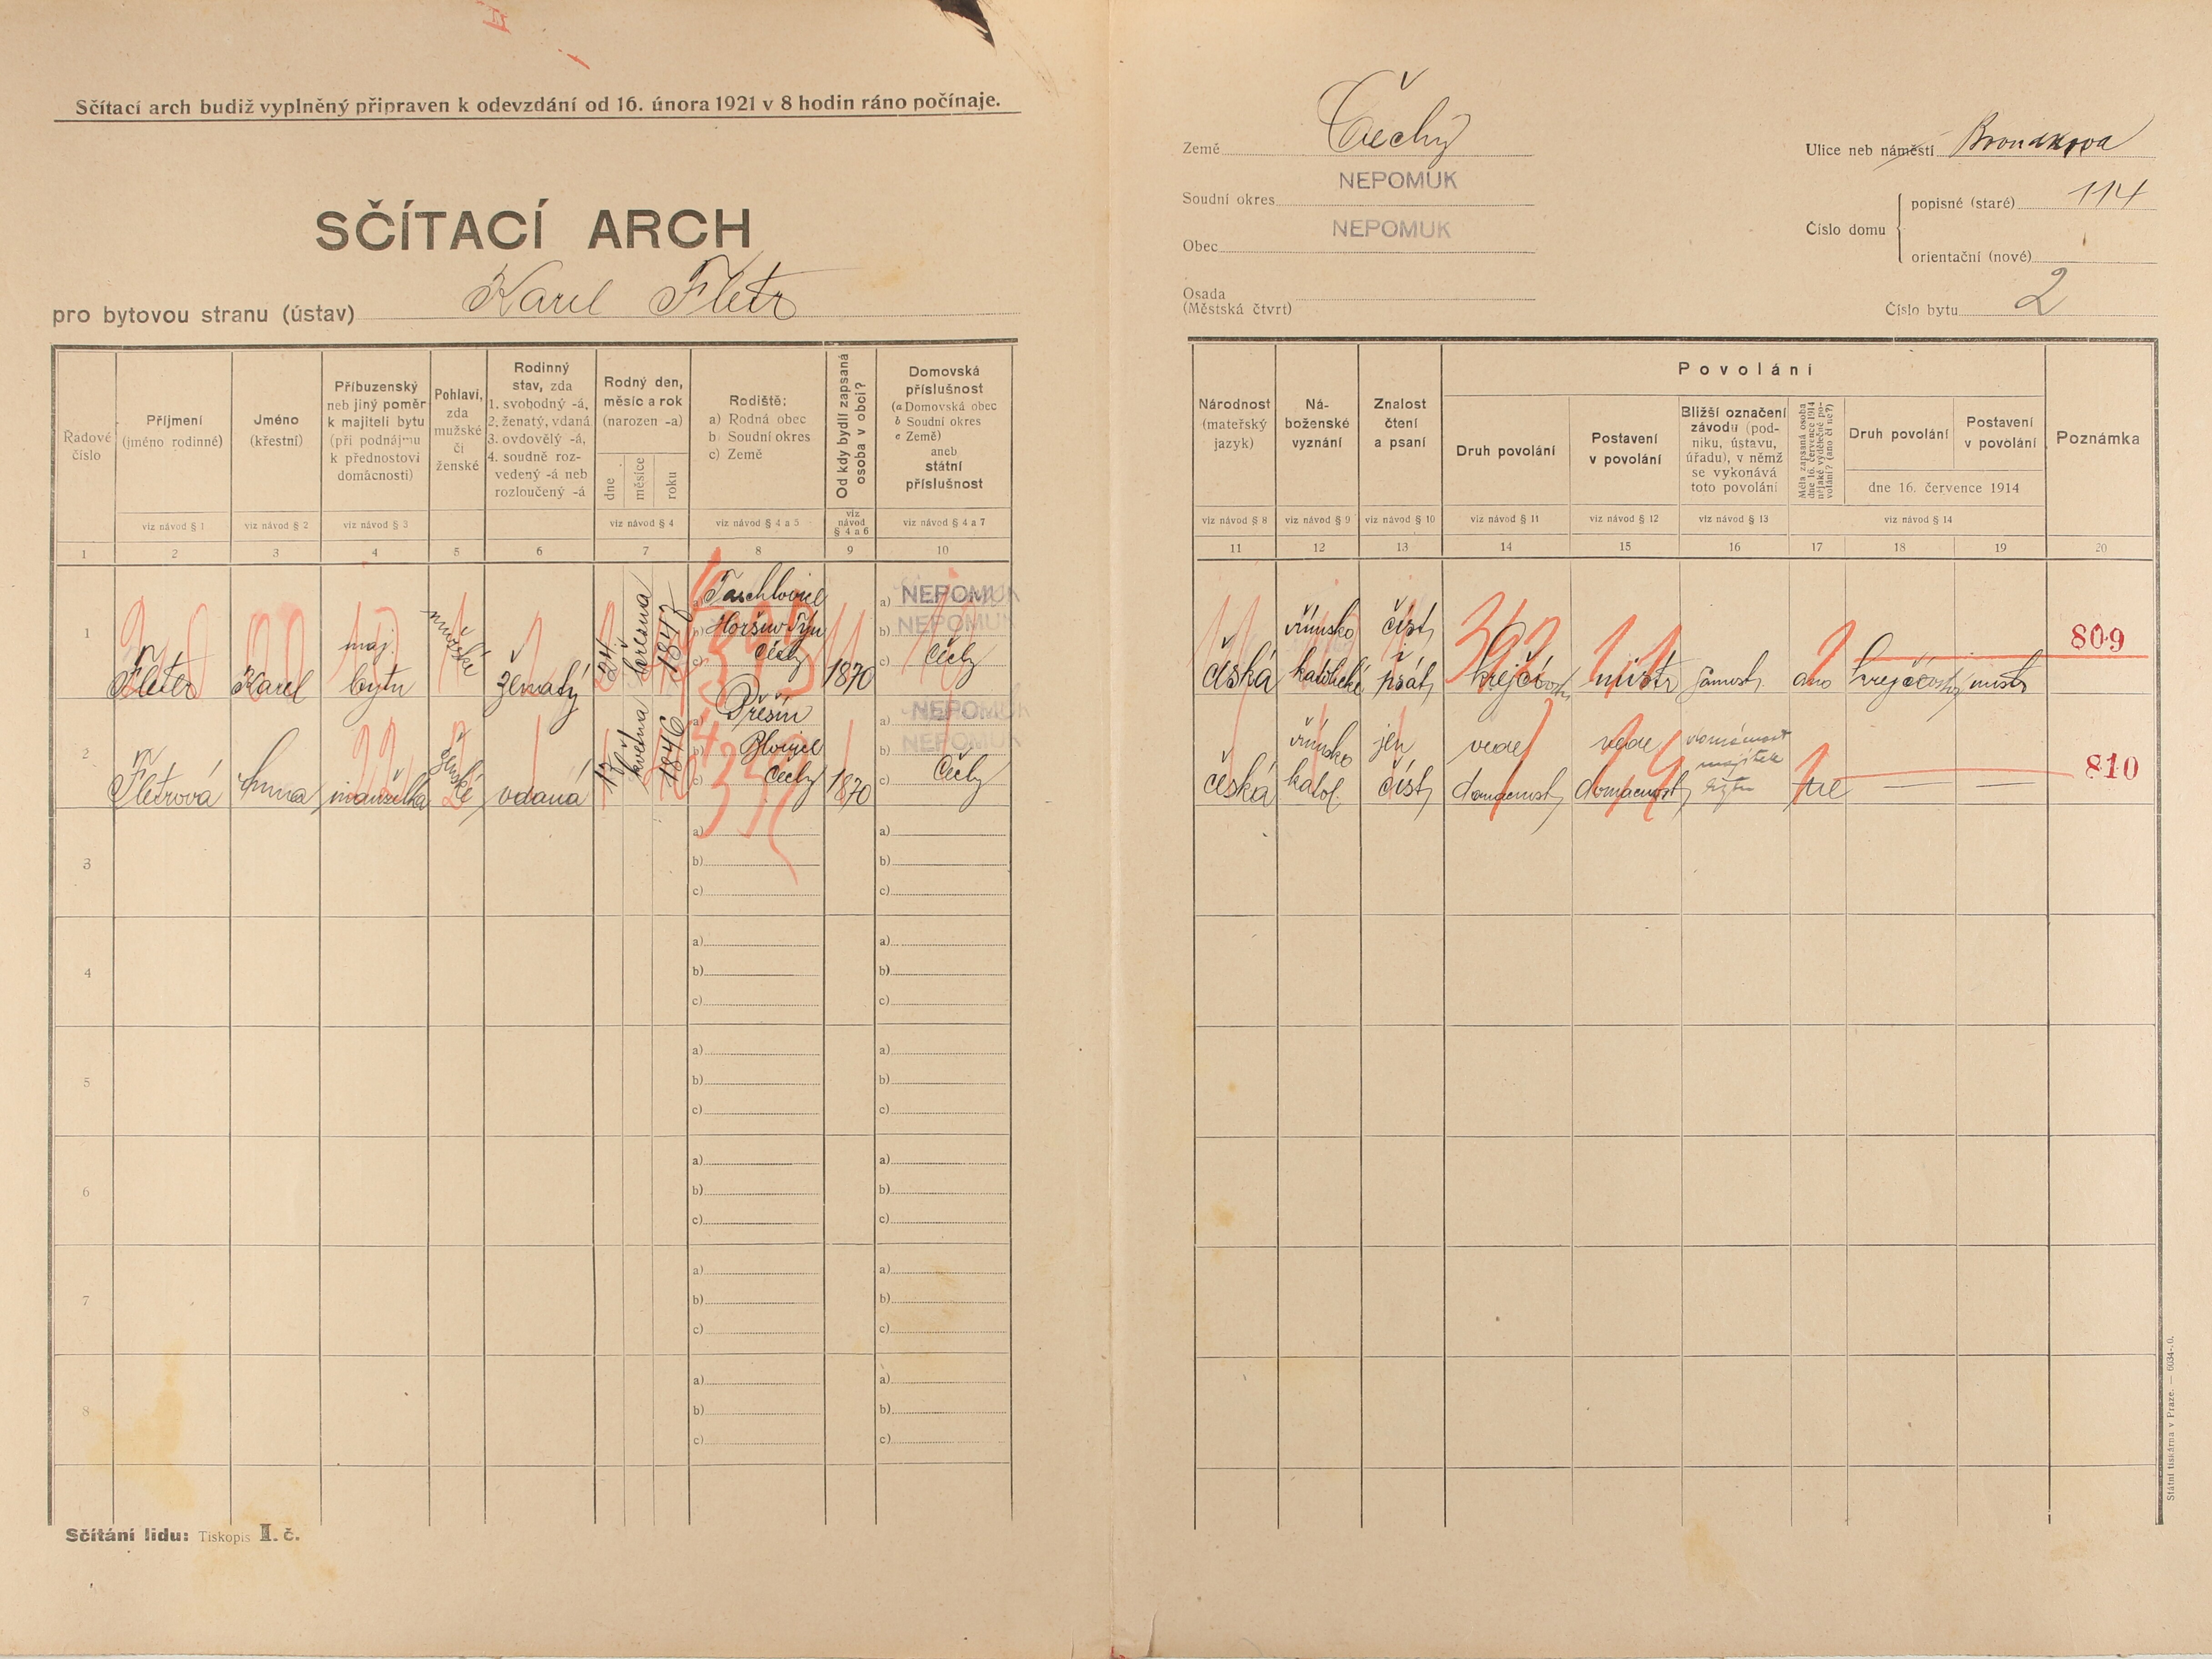 Sčítací arch budiž vyplněný připraven k odevzdání od 16. února 1921 v 8 hodin ráno počínaje.
SČÍTACÍ ARCH
pro bytovou stranu (ústav) Karel Fletr
Země Čechy
Soudní okres NEPOMUK
Obec NEPOMUK
Osada
(Městská čtvrt)
Ulice neb náměstí
Číslo domu
popisné (staré) 114
orientační (nové)
Číslo bytu 2
Řadové
číslo
Příjmení
(jméno rodinné)
viz návod § 1
Jméno
(křestní)
viz návod § 2
Příbuzenský
neb jiný poměr
k majiteli bytu
(při podnájmu
k přednostovi
domácnosti)
viz návod § 3
Pohlaví,
zda
mužské
či
ženské
Rodinný
stav, zda
1. svobodný -á,
2. ženatý, vdaná
3. ovdovělý -á,
4. soudně roz-
vedený -á neb
rozloučený -á
Rodný den,
měsíc a rok
(narozen -a)
dne
měsíce
roku
viz návod § 4
Rodiště:
a) Rodná obec
b) Soudní okres
c) Země
viz návod § 4 a 5
Od kdy bydlí zapsaná
osoba v obci?
viz
návod
§ 4 a 6
Domovská
příslušnost
(a Domovská obec
b Soudní okres
c Země)
aneb
státní
příslušnost
viz návod § 4 a 7
Národnost
(mateřský
jazyk)
viz návod § 8
Ná-
boženské
vyznání
viz návod § 9
Znalost
čtení
a psaní
viz návod § 10
Povolání
Druh povolání
viz návod § 11
Postavení
v povolání
viz návod § 12
Bližší označení
závodu (pod-
niku, ústavu,
úřadu), v němž
se vykonává
toto povolání
viz návod § 13
Měla zapsaná osoba
dne 16. července 1914
nějaké výdělečné po-
volání? (ano či ne?)
Druh povolání
Postavení
v povolání
dne 16. července 1914
viz návod § 14
Poznámka
1 2 3 4 5 6 7 8 9 10 11 12 13 14 15 16 17 18 19 20
1
Fletr
Karel
maj.
bytu
mužské
ženatý
24.
března
1847
a)
b) Horšův Týn
c) Čechy
1870
a) NEPOMUK
b) NEPOMUK
c) Čechy
česká
římsko
katolické
číst,
psát,
mistr
ano
mistr
809
2
Fletrová
Anna
manželka
ženské
vdaná
17
května
1846
a)
b)
c) Čechy
1870
a) NEPOMUK
b) NEPOMUK
c) Čechy
česká
římsko
katol.
jen
číst,
vede
domácnost,
vede
domácnost,
domácnost
majitele
bytu
ne
— —
810
3
a)
b)
c)
a)
b)
c)
4
a)
b)
c)
a)
b)
c)
5
a)
b)
c)
a)
b)
c)
6
a)
b)
c)
a)
b)
c)
7
a)
b)
c)
a)
b)
c)
8
a)
b)
c)
a)
b)
c)
Sčítání lidu: Tiskopis I. č.
Státní tiskárna v Praze. — 6034-20.